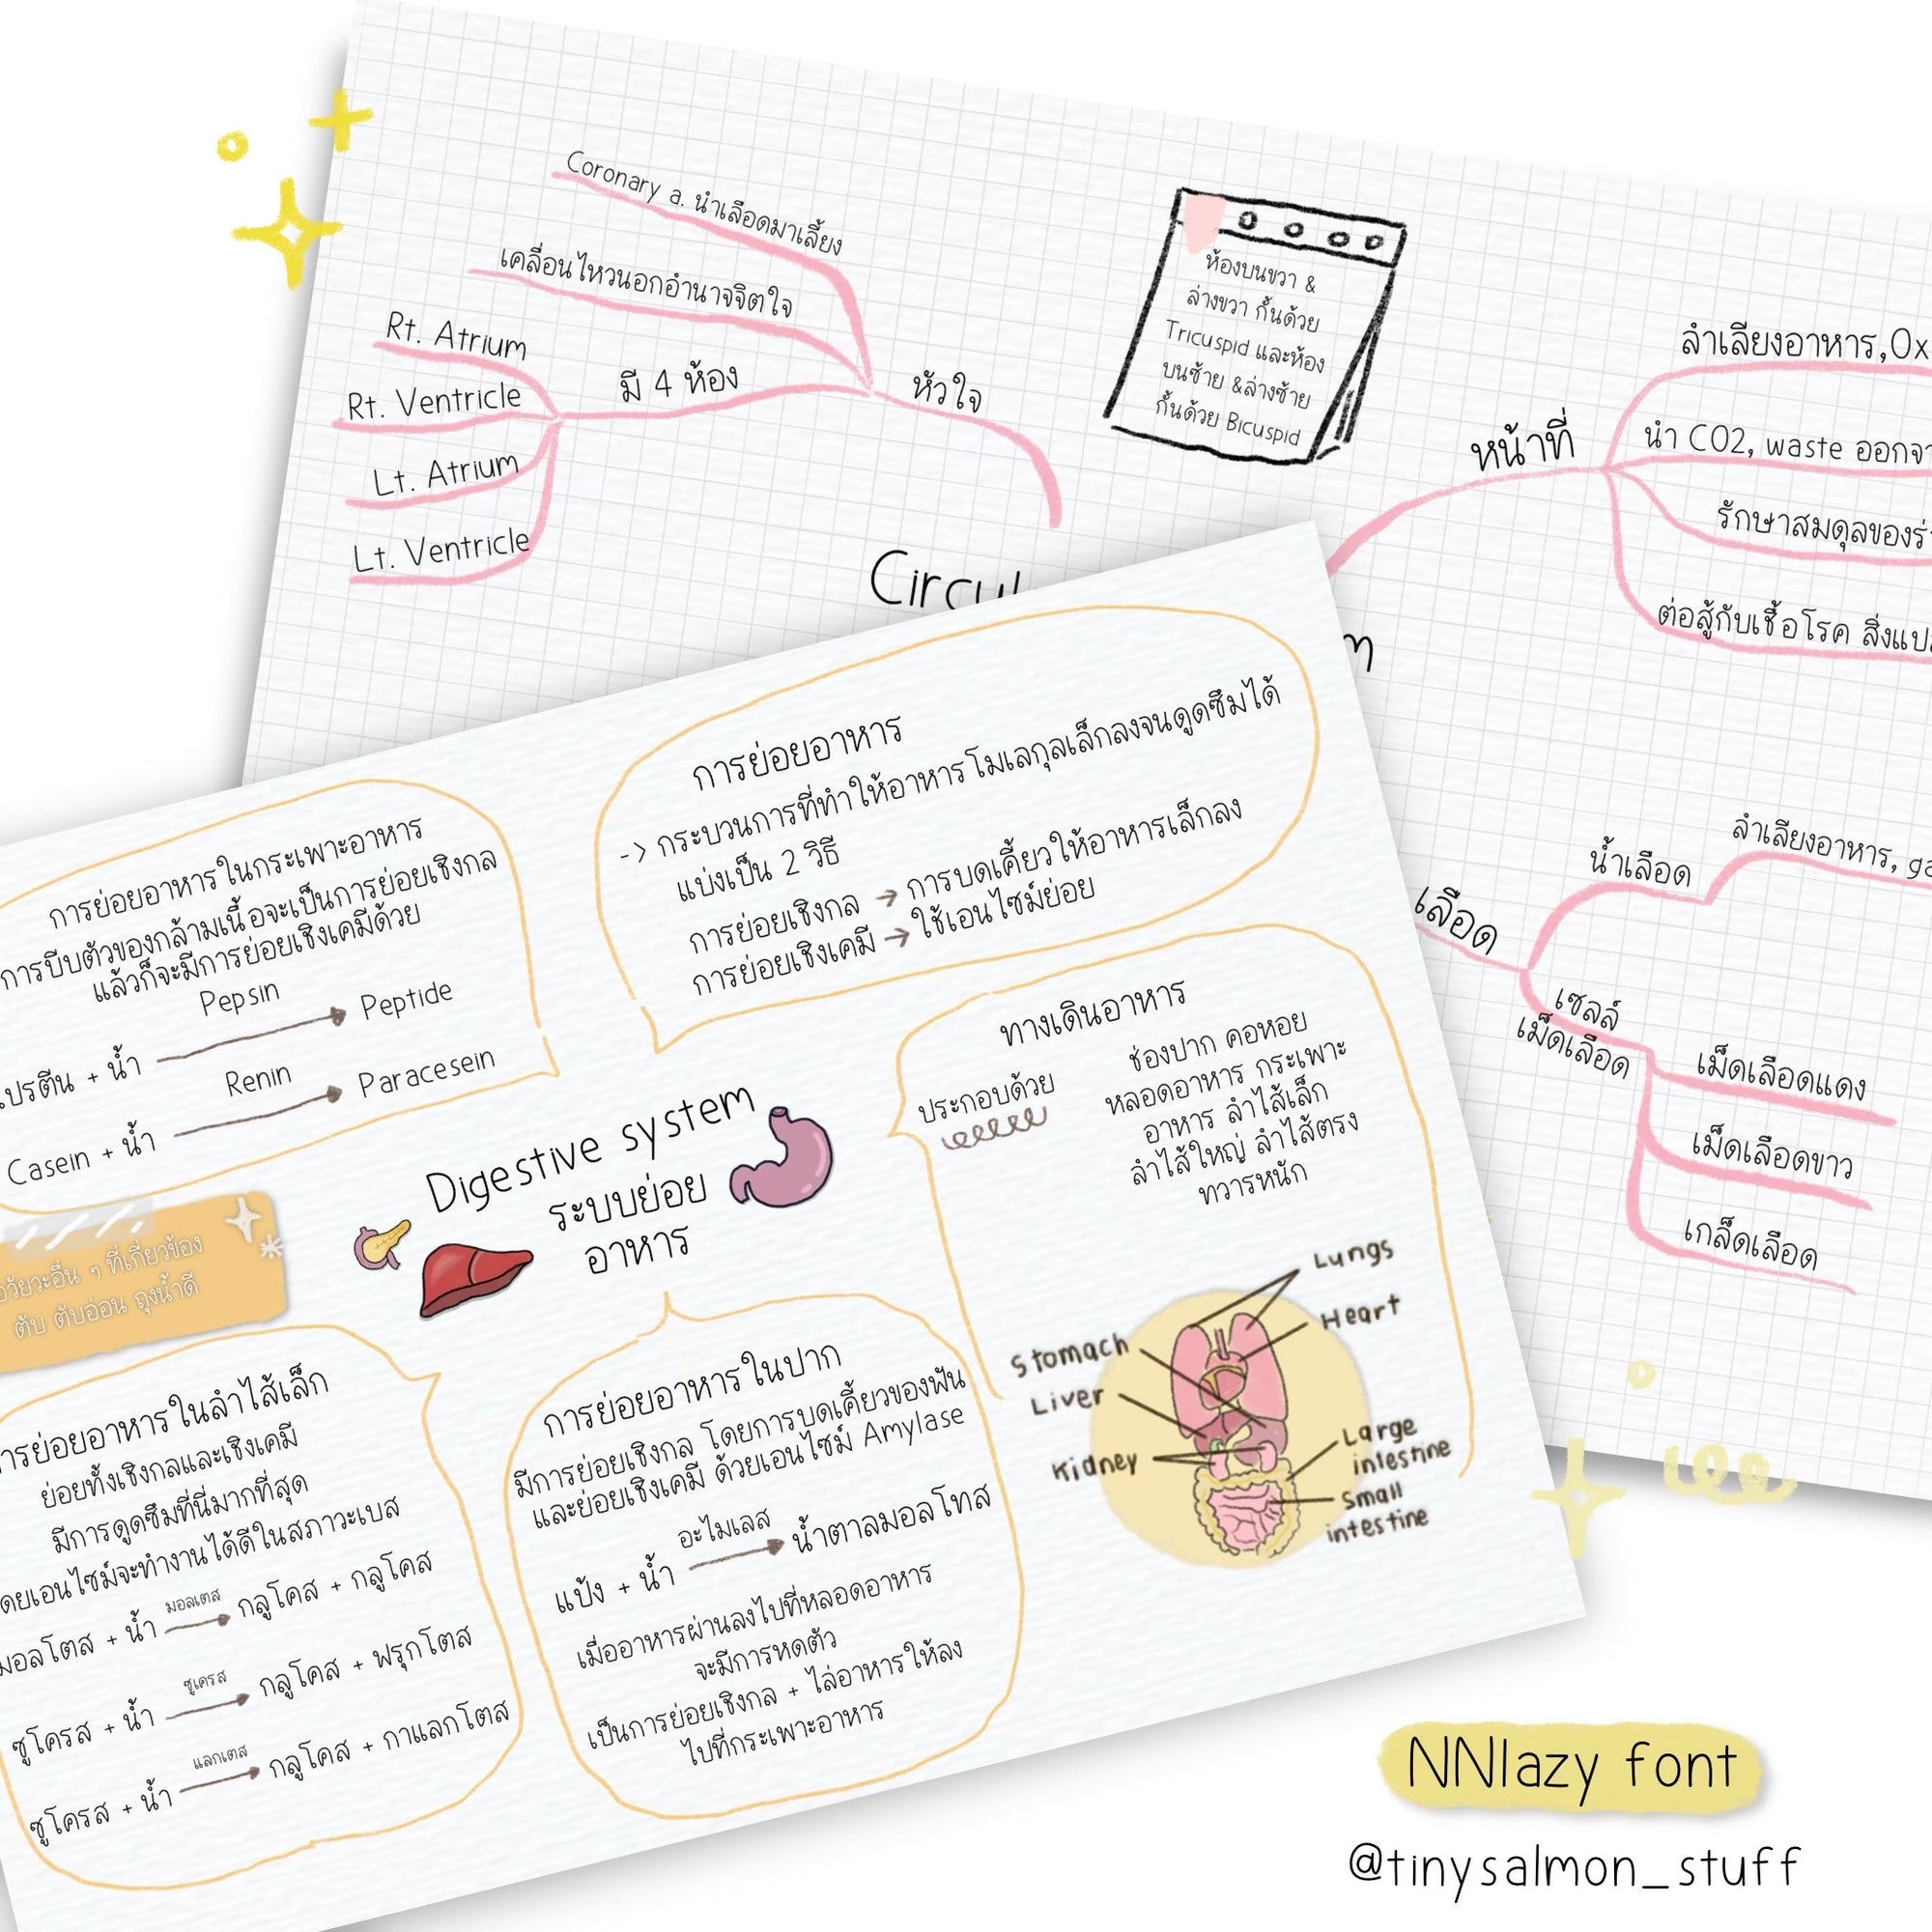 Coronary a. นำเลือดมาเลี้ยง
เคลื่อนไหวนอกอำนาจจิตใจ
Rt. Atrium
Rt. Ventricle
Lt. Atrium
Lt. Ventricle
มี 4 ห้อง
หัวใจ
ห้องบนขวา &
ล่างขวา กั้นด้วย
Tricuspid และห้อง
บนซ้าย &ล่างซ้าย
กั้นด้วย Bicuspid
หน้าที่
ลำเลียงอาหาร,Ox
นำ CO2, waste ออกจา
รักษาสมดุลของร่
ต่อสู้กับเชื้อโรค สิ่งแป
Circul
m
เลือด
น้ำเลือด
ลำเลียงอาหาร, ga
เซลล์
เม็ดเลือด
เม็ดเลือดแดง
เม็ดเลือดขาว
เกล็ดเลือด
การย่อยอาหาร
-> กระบวนการที่ทำให้อาหารโมเลกุลเล็กลงจนดูดซึมได้
แบ่งเป็น 2 วิธี
การย่อยเชิงกล → การบดเคี้ยวให้อาหารเล็กลง
การย่อยเชิงเคมี → ใช้เอนไซม์ย่อย
การย่อยอาหารในกระเพาะอาหาร
การบีบตัวของกล้ามเนื้อจะเป็นการย่อยเชิงกล
แล้วก็จะมีการย่อยเชิงเคมีด้วย
Pepsin
โปรตีน + น้ำ → Peptide
Renin
Casein + น้ำ → Paracesein
Digestive system
ระบบย่อย
อาหาร
ทางเดินอาหาร
ประกอบด้วย
ช่องปาก คอหอย
หลอดอาหาร กระเพาะ
อาหาร ลำไส้เล็ก
ลำไส้ใหญ่ ลำไส้ตรง
ทวารหนัก
Lungs
Heart
Stomach
Liver
Kidney
Large
intestine
Small
intestine
อวัยวะอื่น ๆ ที่เกี่ยวข้อง
ตับ ตับอ่อน ถุงน้ำดี
การย่อยอาหารในลำไส้เล็ก
ย่อยทั้งเชิงกลและเชิงเคมี
มีการดูดซึมที่นี่มากที่สุด
ดยเอนไซม์จะทำงานได้ดีในสภาวะเบส
มอลเตส
มอลโตส + น้ำ → กลูโคส + กลูโคส
ซูเครส
ซูโครส + น้ำ → กลูโคส + ฟรุกโตส
แลกเตส
ซูโครส + น้ำ → กลูโคส + กาแลกโตส
การย่อยอาหารในปาก
มีการย่อยเชิงกล โดยการบดเคี้ยวของฟัน
และย่อยเชิงเคมี ด้วยเอนไซม์ Amylase
อะไมเลส
แป้ง + น้ำ → น้ำตาลมอลโทส
เมื่ออาหารผ่านลงไปที่หลอดอาหาร
จะมีการหดตัว
เป็นการย่อยเชิงกล + ไล่อาหารให้ลง
ไปที่กระเพาะอาหาร
NNlazy font
@tinysalmon_stuff